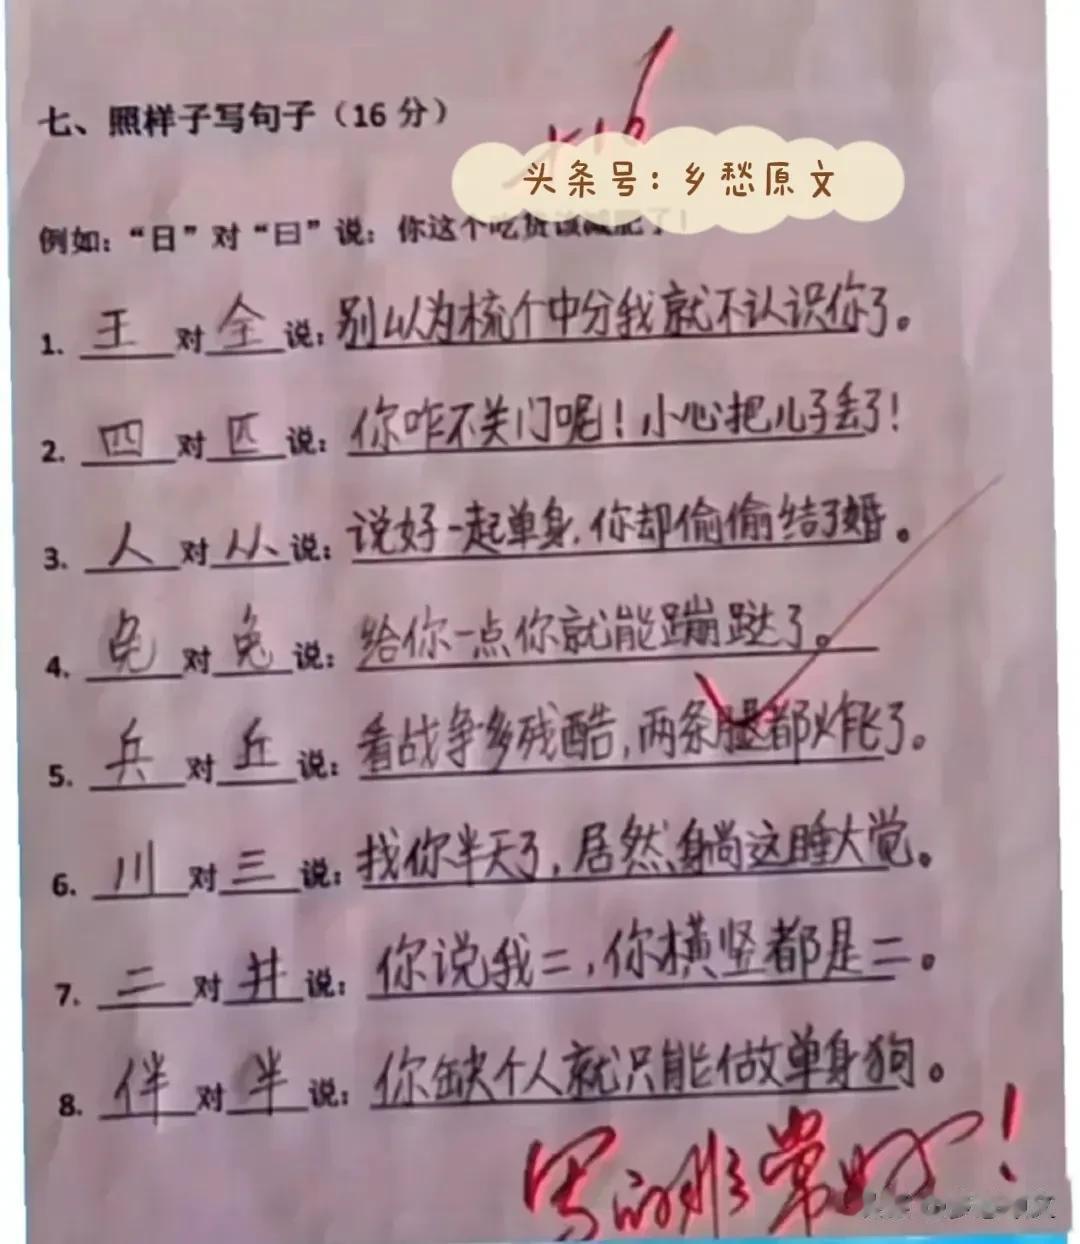 七、照样子写句子（16 分）
+16
头条号：乡愁原文
例如：“日”对“曰”说：你这个吃货该减肥了！
1. 王 对 全 说：别以为梳个中分我就不认识你了。
2. 四 对 匹 说：你咋不关门呢！小心把儿子丢了！
3. 人 对 从 说：说好一起单身，你却偷偷结了婚。
4. 免 对 兔 说：给你一点你就能蹦跶了。
5. 兵 对 丘 说：看战争多残酷，两条腿都炸飞了。
6. 川 对 三 说：找你半天了，居然躺这睡大觉。
7. 二 对 井 说：你说我二，你横竖都是二。
8. 伴 对 半 说：你缺个人就只能做单身狗。
写的非常好！